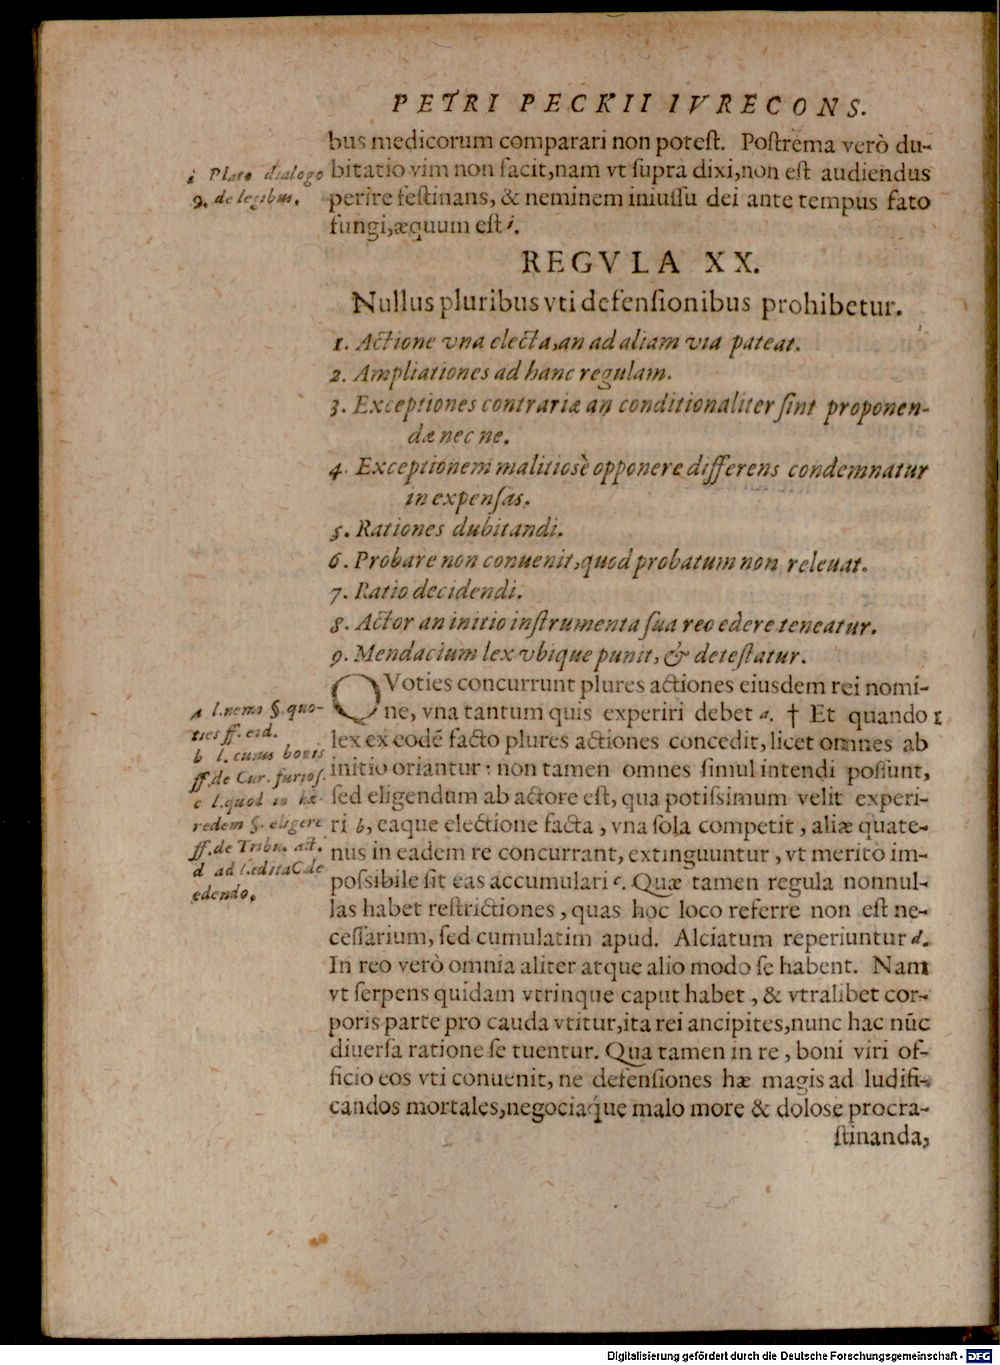 PETRI PECKII IVRECONS.
bus medicorum comparari non poteſt. Poſtrema verò du-
bitatio vim non facit,nam vt ſuprà dixi,non eſt audiendus
perire feſtinans, & neminem iniuſſu dei ante tempus fato
fungi,æquum eſt i.
i Plato dialogo
9. de legibus.
REGVLA XX.
Nullus pluribus vti defenſionibus prohibetur.
1. Actione vna electa,an ad aliam via pateat.
2. Ampliationes ad hanc regulam.
3. Exceptiones contrariæ an conditionaliter ſint proponen-
dæ nec ne.
4. Exceptionem malitiosè opponere differens condemnatur
in expenſas.
5. Rationes dubitandi.
6. Probare non conuenit,quod probatum non releuat.
7. Ratio decidendi.
8. Actor an initio inſtrumenta ſua reo edere teneatur.
9. Mendacium lex vbique punit, & deteſtatur.
QVoties concurrunt plures actiones eiusdem rei nomi-
ne, vna tantum quis experiri debet a. † Et quando 1
lex ex eodē facto plures actiones concedit, licet omnes ab
initio oriantur: non tamen omnes ſimul intendi poſſunt,
ſed eligendum ab actore eſt, qua potiſsimum velit experi-
ri b, eaque electione facta, vna ſola competit, aliæ quate-
nus in eadem re concurrant, extinguuntur, vt meritò im-
poſsibile ſit eas accumulari c. Quæ tamen regula nonnul-
las habet reſtrictiones, quas hoc loco referre non eſt ne-
ceſſarium, ſed cumulatim apud. Alciatum reperiuntur d.
In reo verò omnia aliter atque alio modo ſe habent. Nam
vt ſerpens quidam vtrinque caput habet, & vtralibet cor-
poris parte pro cauda vtitur,ita rei ancipites,nunc hac nūc
diuerſa ratione ſe tuentur. Qua tamen in re, boni viri of-
ficio eos vti conuenit, ne defenſiones hæ magis ad ludifi-
candos mortales,negociáque malo more & dolose procra-
ſtinanda,
a l.nemo §. quo-
ties ff. eod.
b l. cuius bonis
ff.de Cur. furioſ.
c l.quod in hæ-
redem §. eligere
ff.de Tribu. act.
d ad l.edita C.de
edendo.
Digitalisierung gefördert durch die Deutsche Forschungsgemeinschaft - DFG